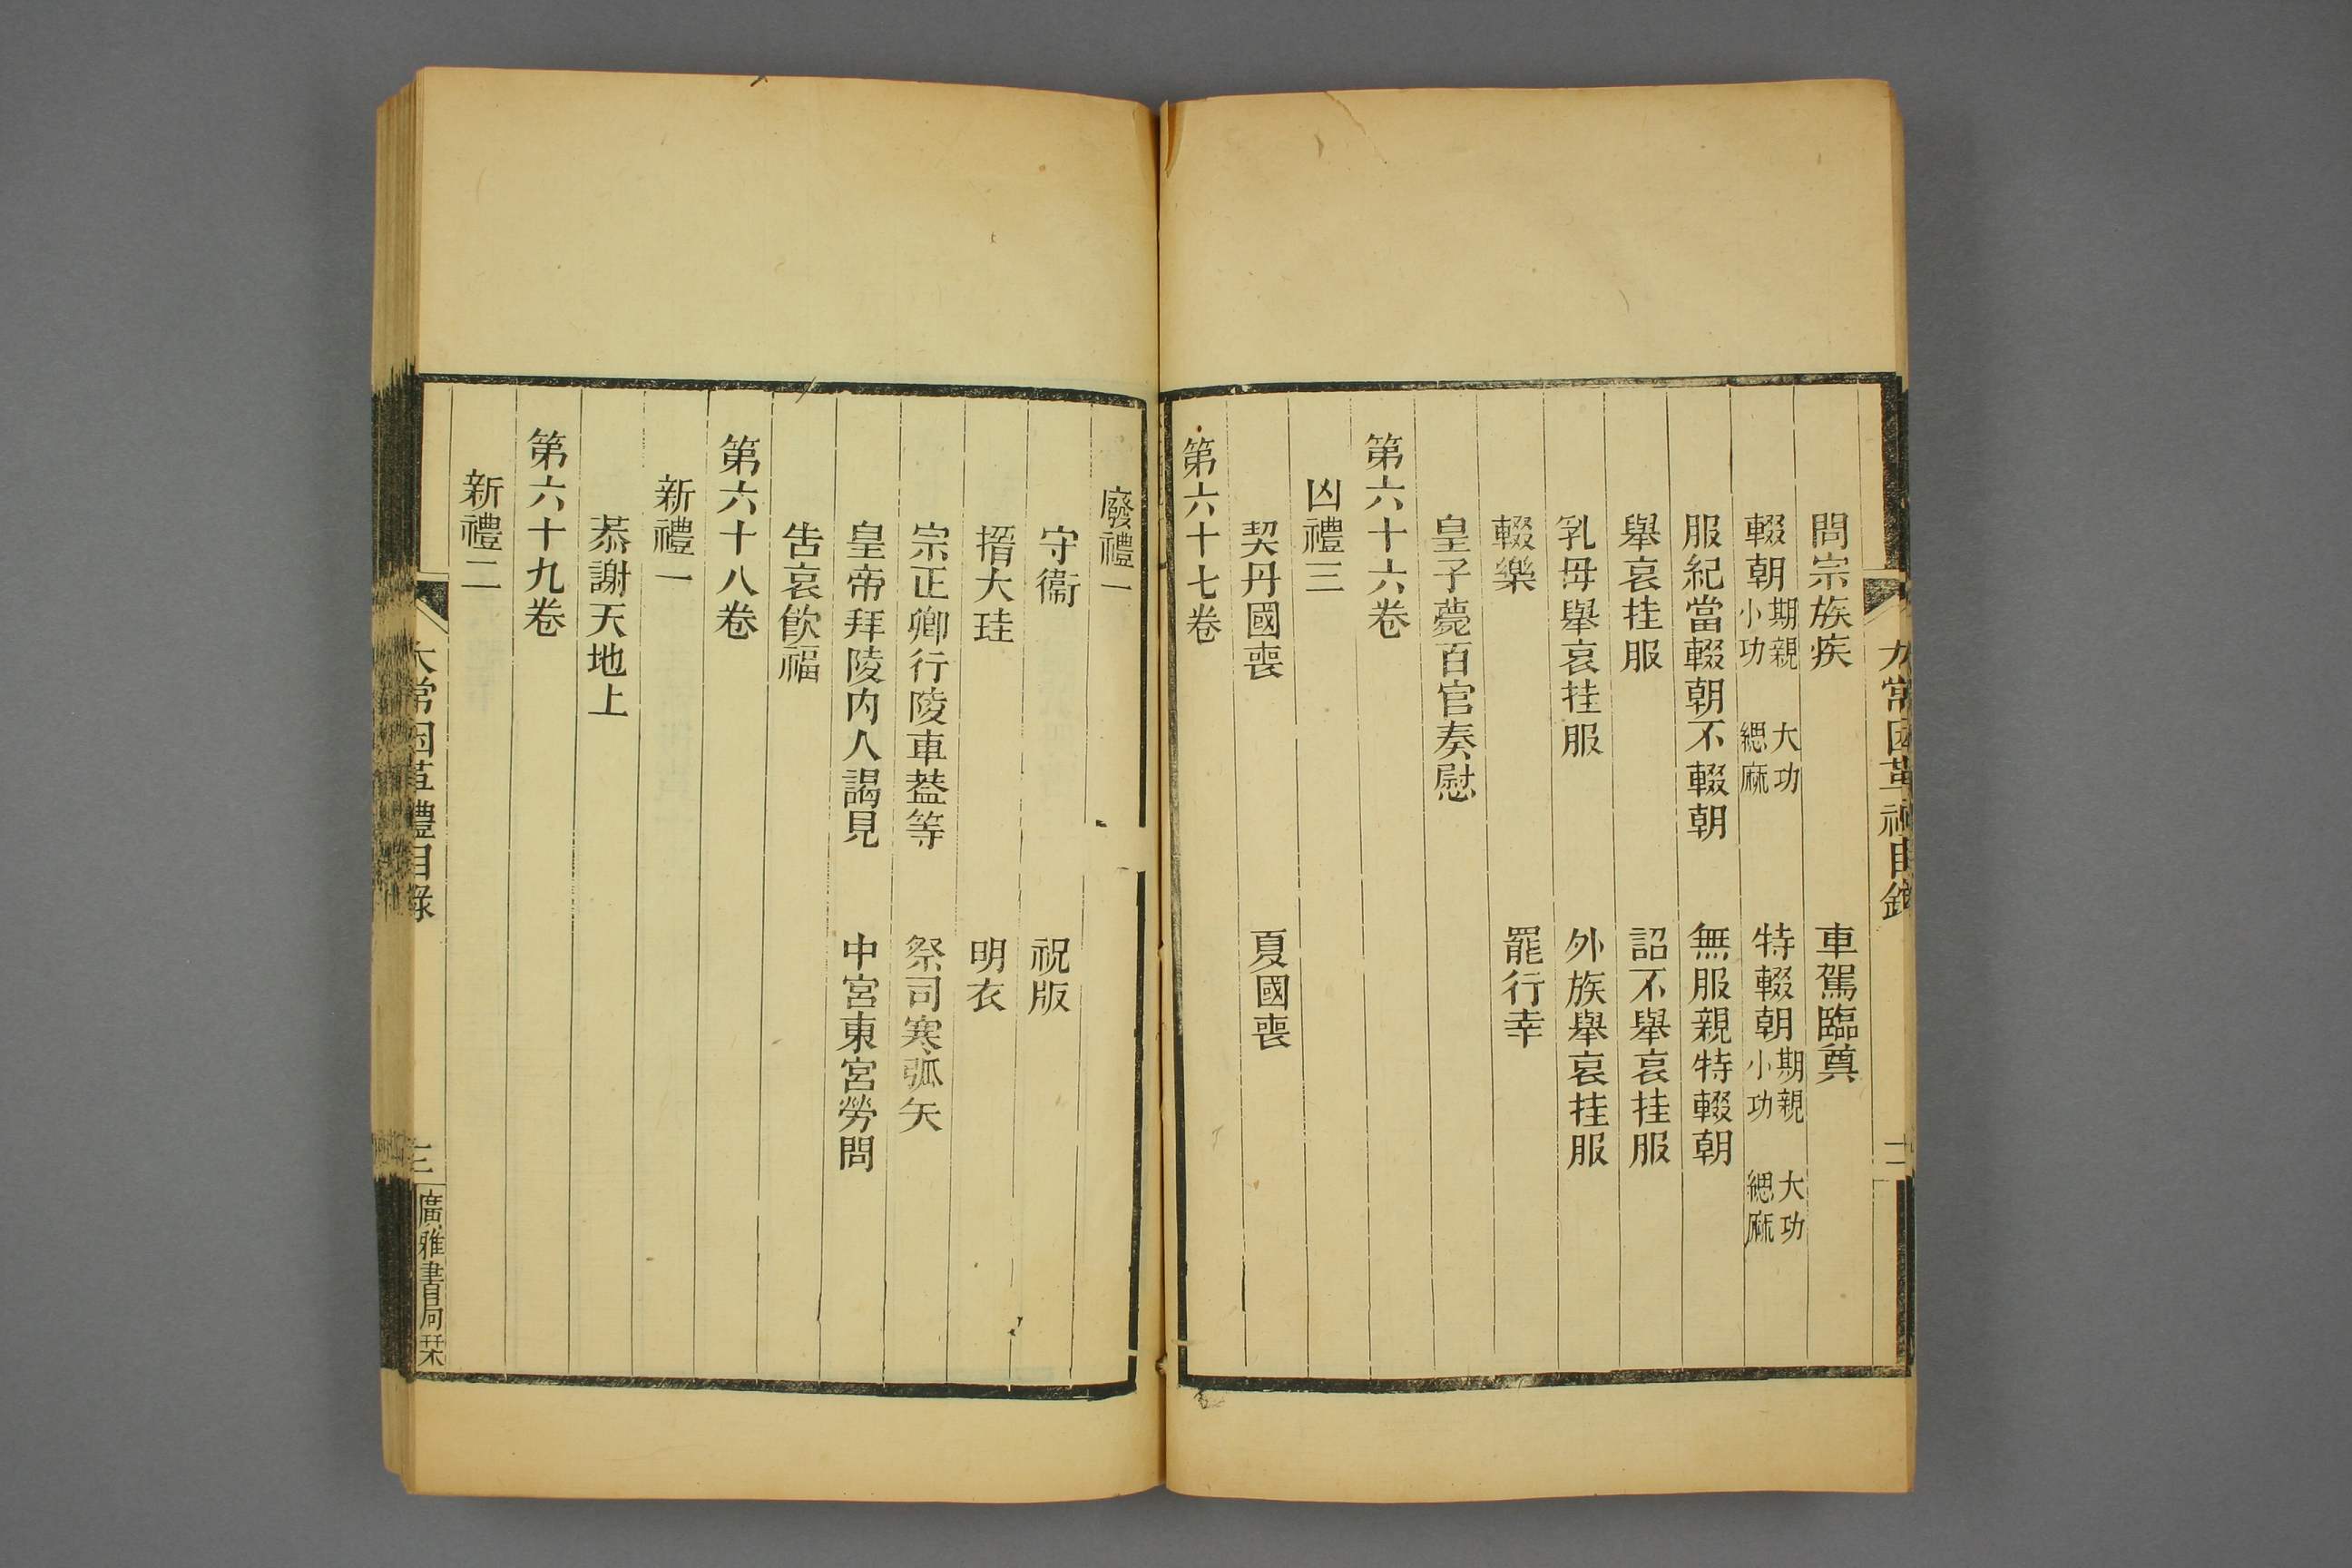 問宗族疾　車駕臨奠
輟朝期親小功　大功緦麻　特輟朝期親小功　大功緦麻
服紀當輟朝不輟朝　無服親特輟朝
舉哀挂服　詔不舉哀挂服
乳母舉哀挂服　外族舉哀挂服
輟樂　罷行幸
皇子薨百官奏慰
第六十六卷
凶禮三
契丹國喪　夏國喪
第六十七卷
廢禮一
守衞　祝版
搢大珪　明衣
宗正卿行陵車葢等　祭司寒弧矢
皇帝拜陵内人謁見　中宮東宮勞問
告哀飮福
第六十八卷
新禮一
恭謝天地上
第六十九卷
新禮二
太常因革禮目錄　三　廣雅書局栞